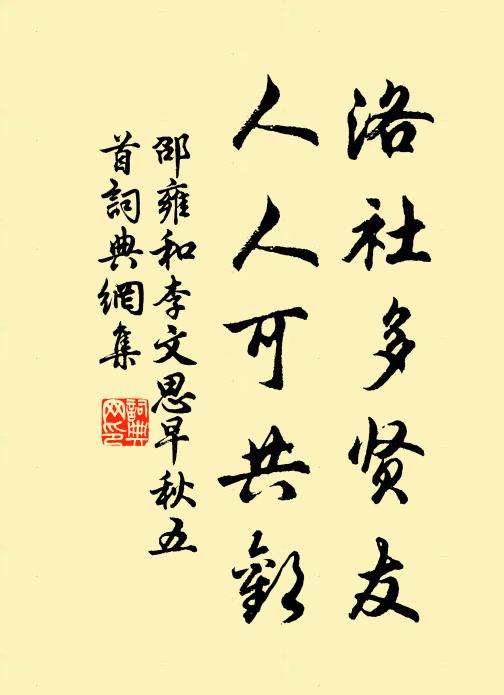 洛社多贤友
人人可共歡
邵雍和李文思早秋五
首詞典網集
詞典
网印